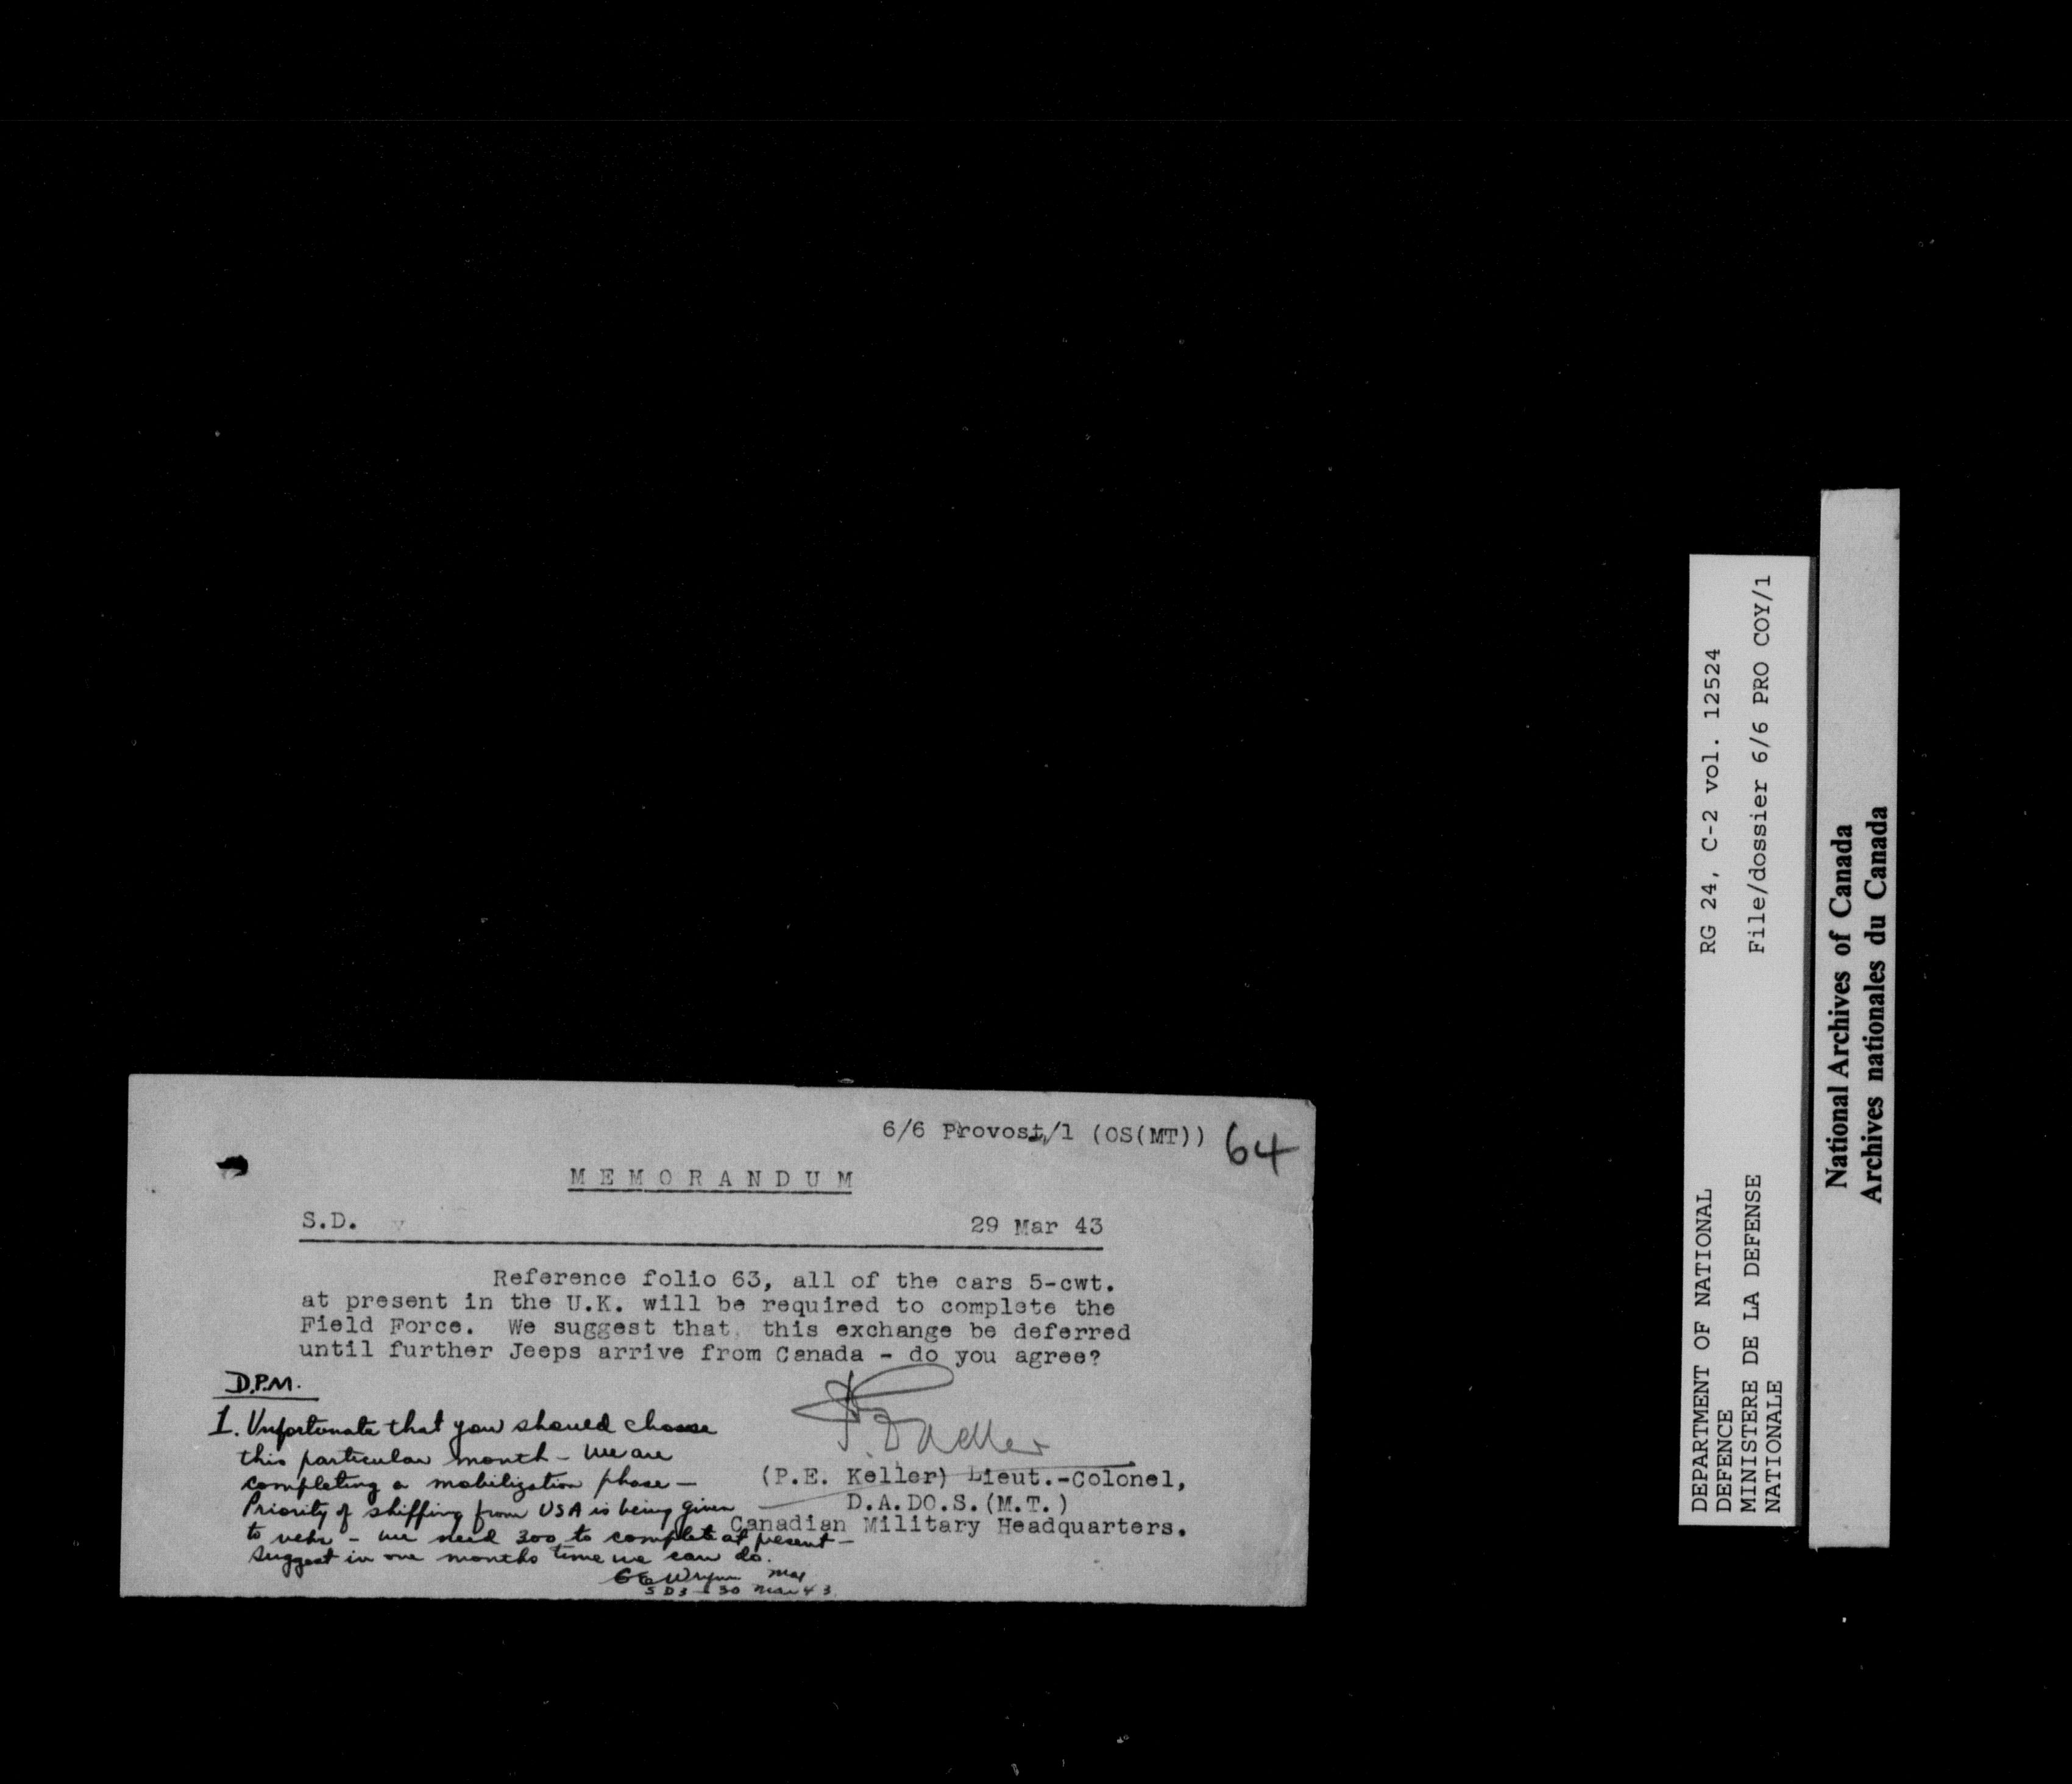 6/6 Provost/1 (OS(MT)) 64
MEMORANDUM
S.D. 29 Mar 43
Reference folio 63, all of the cars 5-cwt.
at present in the U.K. will be required to complete the
Field Force. We suggest that this exchange be deferred
until further Jeeps arrive from Canada - do you agree?
(P.E. Keller) Lieut.-Colonel,
D.A.DO.S.(M.T.)
Canadian Military Headquarters.
D.P.M.
1. Unfortunate that you should choose
this particular month - we are
completing a mobilization phase -
Priority of shipping from USA is being given
to vehs - we need 300 to complete at present -
suggest in one months time we can do.
Maj
SD3 30 Mar 43
DEPARTMENT OF NATIONAL RG 24, C-2 vol. 12524
DEFENCE
MINISTERE DE LA DEFENSE File/dossier 6/6 PRO COY/1
NATIONALE
National Archives of Canada
Archives nationales du Canada